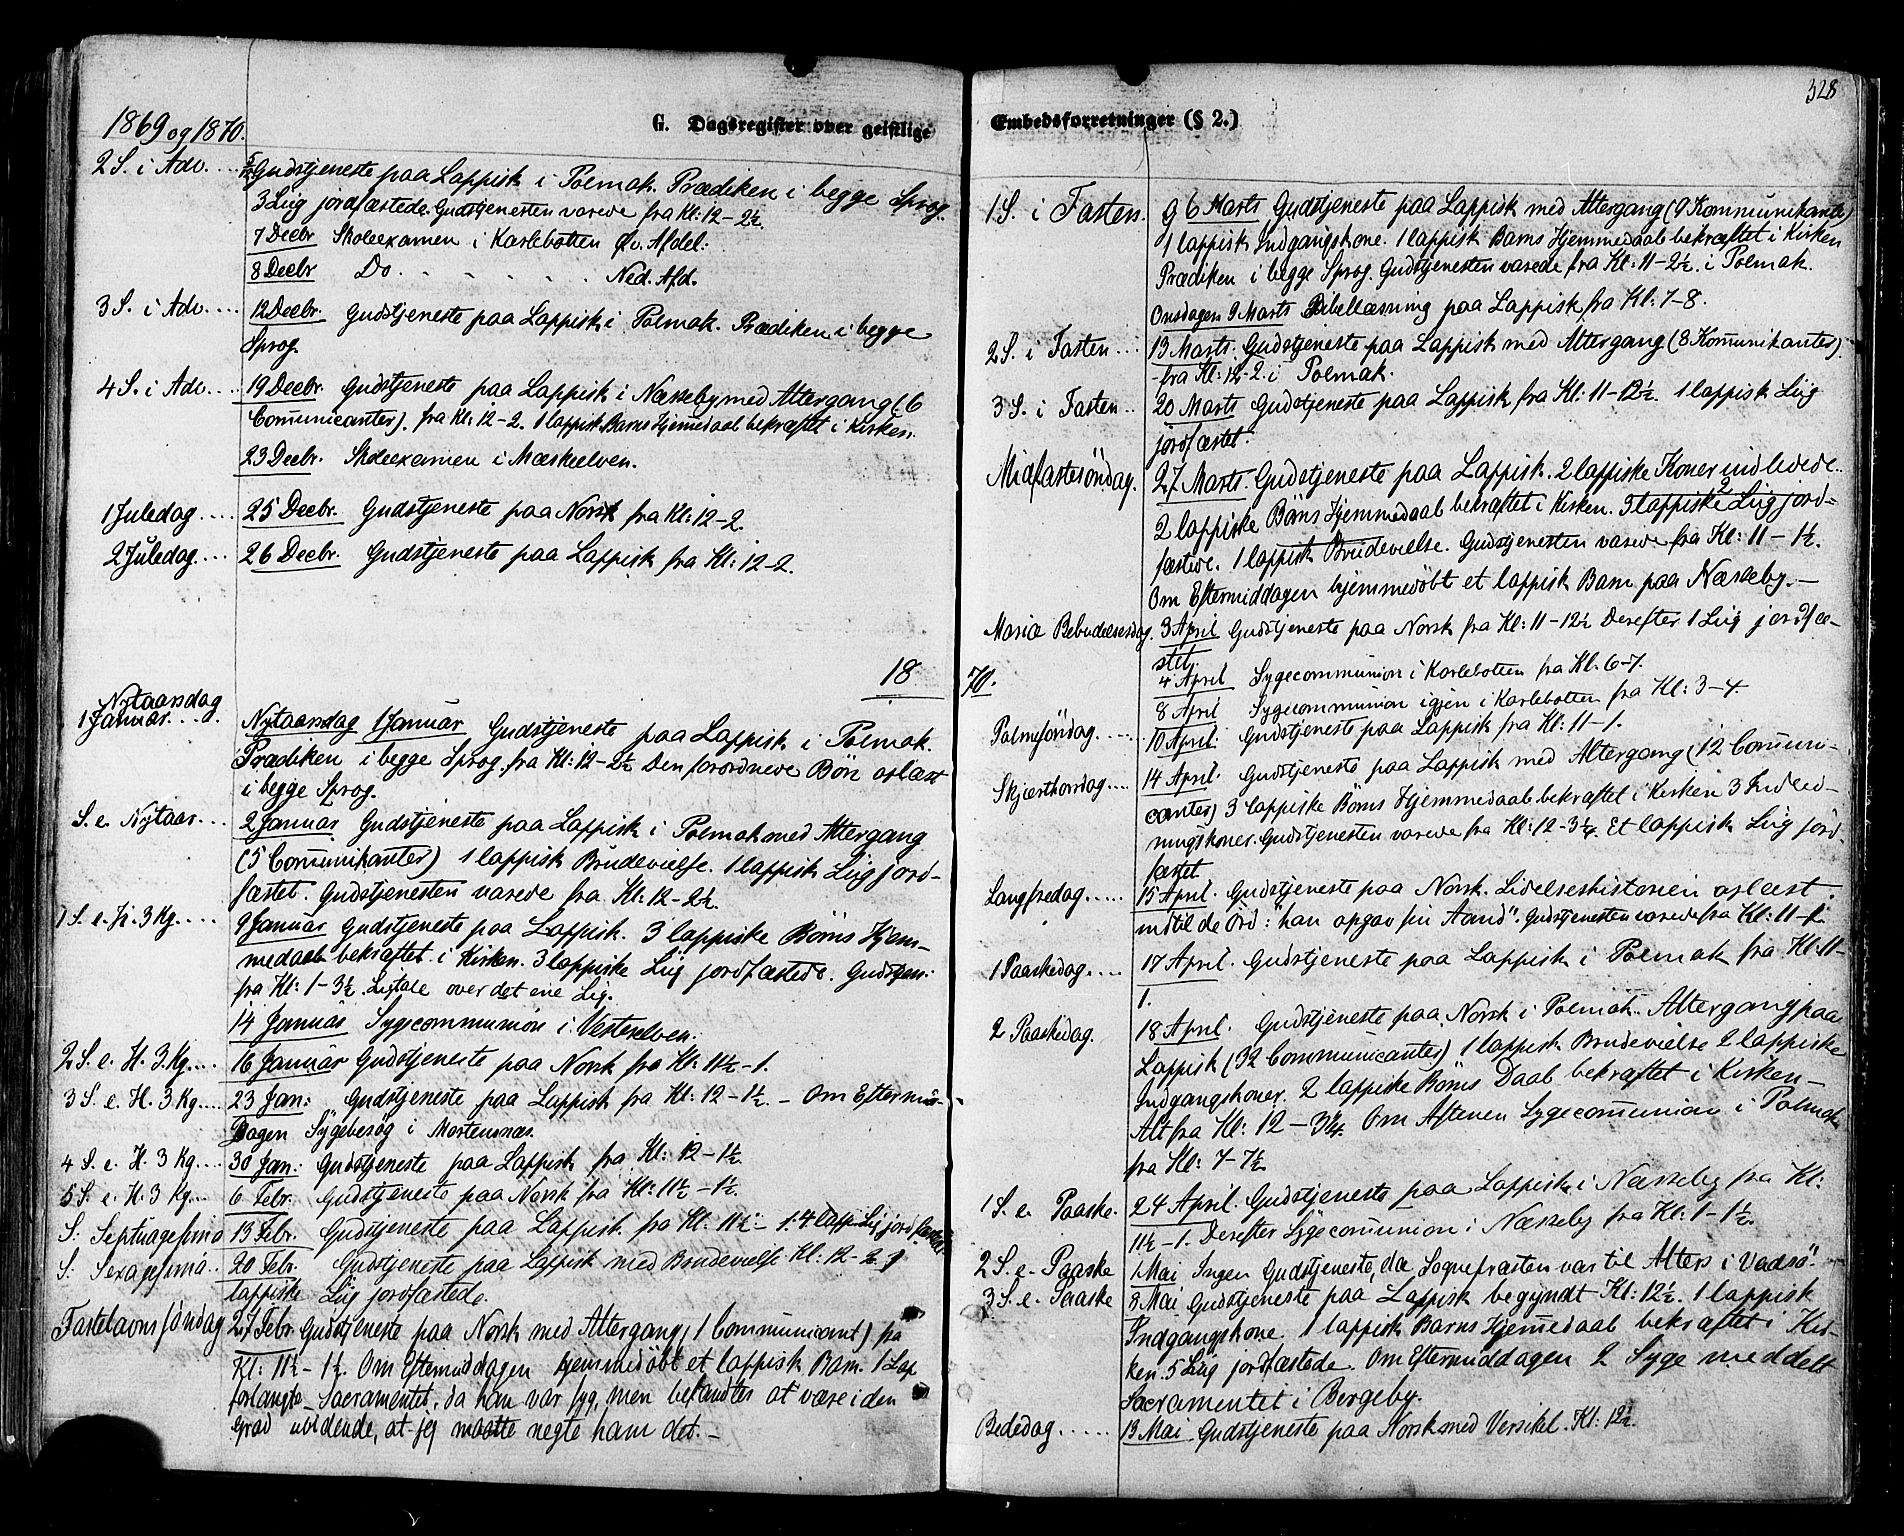 1869 og 1870.
G. Dagsregister over geistlige
2 S. i Adv.... 5/12 Gudstjeneste paa Lappisk i Polmak. Prædiken i begge Sprog.
3 Liig jordfæstede. Gudstjenesten varede fra Kl: 12-2½.
7 Decbr Skoleexamen i Karlebotten Øv. Afdel:
8 Decbr Do. . . . . . . Ned. Afd.
3 S. i Adv.... 12 Decbr. Gudstjeneste paa Lappisk i Polmak. Prædiken i begge
Sprog.
4 S. i Adv.... 19 Decbr. Gudstjeneste paa Lappisk i Næsseby med Altergang (6
Communicanter). fra Kl: 12-2. 1 lappisk Barns Hjemmedaab bekræftet i Kirken.
23 Decbr. Skoleexamen i Mæskelven.
1 Juledag.... 25 Decbr. Gudstjeneste paa Norsk fra Kl: 12-2.
2 Juledag.... 26 Decbr. Gudstjeneste paa Lappisk fra Kl: 12-2.
18
Nytaarsdag
1 Januar.... Nytaarsdag 1 Januar Gudstjeneste paa Lappisk i Polmak.
Prædiken i begge Sprog. fra Kl: 12-2½ Den forordnede Bön oplæst
i begge Sprog.
S. e. Nytaar... 2 Januar Gudstjeneste paa Lappisk i Polmak med Altergang
(5 Communikanter) 1 lappisk Brudevielse. 1 lappisk Liig jord-
fæstet. Gudstjenesten varede fra Kl: 12-2½.
1 S. e. H. 3 Kg..... 9 Januar Gudstjeneste paa Lappisk. 3 lappiske Börns Hjem-
medaab bekræftet i Kirken. 3 lappiske Liig jordfæstede. Gudstjen:
fra Kl: 1-3½. Ligtale over det ene Lig.
14 Januar Sygecommunion i Vesterelven.
2 S. e. H. 3 Kg.... 16 Januar Gudstjeneste paa Norsk fra Kl: 11½-1.
3 S. e. H. 3 Kg.... 23 Jan: Gudstjeneste paa Lappisk fra Kl: 12-1½ - Om Eftermid-
dagen Sygebesøg i Mortensnæs.
4 S. e. H. 3 Kg.... 30 Jan: Gudstjeneste paa Lappisk fra Kl: 12-1½.
5 S. e. H. 3 Kg.... 6 Febr. Gudstjeneste paa Norsk fra Kl: 11½-1½.
S: Septuagesima 13 Febr. Gudstjeneste paa Lappisk fra Kl. 11½- 1. 4 lapp. Liig jordfæstet.
S: Sexagesima. 20 Febr. Gudstjeneste paa Lappisk med Brudevielse Kl: 12-2.
lappiske Liig jordfæstede.
Fastelavns söndag 27 Febr. Gudstjeneste paa Norsk med Altergang (1 Communicant) fra
Kl: 11½-1½. Om Eftermiddagen hjemmedöbt et lappisk Barn. 1 Lap
forlangte Sacramentet, da han var syg, men befandtes at være i den
Grad uvidende, at jeg maatte negte ham det.-
328
Embedsforretninger (§ 2.)
1 S. i Fasten. 6 Marts Gudstjeneste paa Lappisk med Altergang (9 Kommunikanter)
1 lappisk Indgangskone. 1 lappisk Barns Hjemmedaab bekræftet i Kirken
Prædiken i begge Sprog. Gudstjenesten varede fra Kl: 11-2½. i Polmak.
Onsdagen 9 Marts Bibellæsning paa Lappisk fra Kl: 7-8.
2 S. i Fasten... 13 Marts. Gudstjeneste paa Lappisk med Altergang (8 Kommunikanter).
fra Kl: 12-2. i Polmak.
3 S. i Fasten... 20 Marts Gudstjeneste paa Lappisk fra Kl: 11-12½. 1 lappisk Liig
jordfæstet.
Midfastesöndag. 27 Marts. Gudstjeneste paa Lappisk. 2 lappiske Koner indledede.
2 lappiske Börns Hjemmedaab bekræftet i Kirken. 3 lappiske Liig jord-
fæstede. 1 lappisk Brudevielse. Gudstjenesten varede fra Kl: 11-1½.
Om Eftermiddagen hjemmedöbt et lappisk Barn paa Næsseby.-
Maria Bebudelsesdag. 3 April Gudstjeneste paa Norsk fra Kl: 11-12½ Derefter 1 Liig jordfæ-
stet.
4 April Sygecommunion i Karlebotten fra Kl. 6-7.
8 April Sygecommunion igjen i Karlebotten fra Kl: 3-4.
70.
Palmesöndag.... 10 April: Gudstjeneste paa Lappisk fra Kl: 11-1.
Skjærthorsdag.... 14 April. Gudstjeneste paa Lappisk med Altergang (12 Communi-
canter) 3 lappiske Börns Hjemmedaab bekræftet i Kirken 3 Indled-
ningskoner. Gudstjenesten varede fra Kl: 12-3¼. Et lappisk Liig jord-
fæstet
Langfredag...... 15 April. Gudstjeneste paa Norsk. Lidelseshistorien oplæst
indtil de Ord: "han opgav sin Aand". Gudstjenesten varede fra Kl: 11-1.
1 Paaskedag.... 17 April. Gudstjeneste paa Lappisk i Polmak fra Kl: 11-
1.
2 Paaskedag. 18 April. Gudstjeneste paa Norsk i Polmak. Altergang paa
Lappisk (32 Communicanter) 1 lappisk Brudevielse 2 lappiske
Indgangskoner. 2 lappiske Börns Daab bekræftet i Kirken-
Alt fra Kl: 12-3¼. Om Aftenen Sygecommunion i Polmak
fra Kl: 7-7½
1 S. e. Paaske. 24 April. Gudstjeneste paa Lappisk i Næsseby fra Kl:
11½-1. Derefter Sygecommunion i Næsseby fra Kl: 1-1½.
2 S. e. Paaske 1 Mai Ingen Gudstjeneste, da Sognepræsten var til Alters i Vadsö.
3 S. e. Paaske 8 Mai Gudstjeneste paa Lappisk begyndt Kl: 12½. 1 lappisk
Indgangskone. 1 lappisk Barns Hjemmedaab bekræftet i Kir-
ken. 5 Liig jordfæstede. Om Eftermiddagen 2 Syge meddelt
Sacramentet i Bergeby.
Bededag...... 13 Mai. Gudstjeneste paa Norsk med Versikel. Kl: 12½.